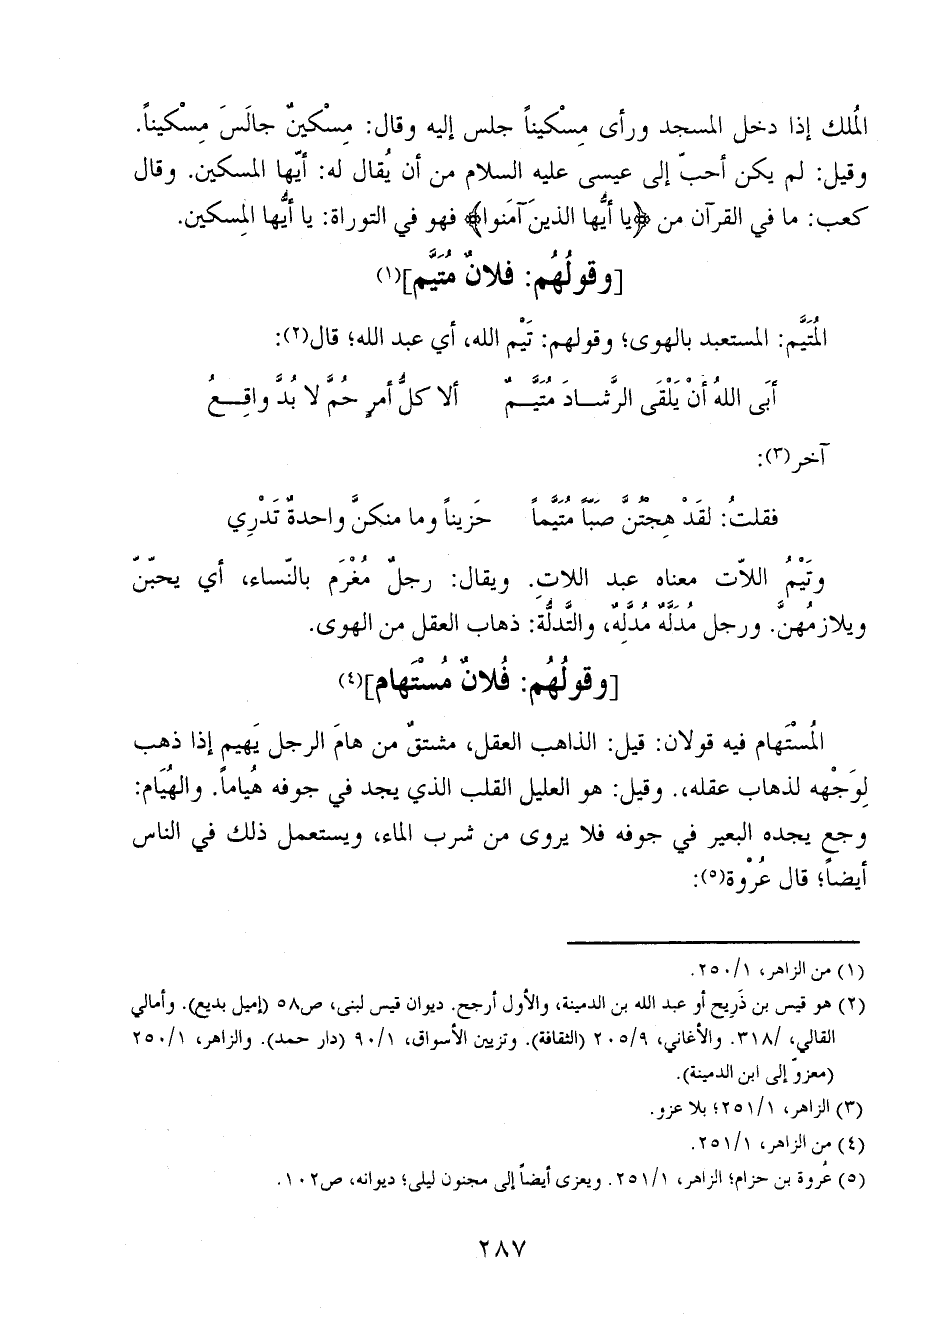 المُلك إذا دخل المسجد ورأى مِسْكيناً جلس إليه وقال: مِسْكينٌ جالَسَ مِسْكيناً.
وقيل: لم يكن أحبّ إلى عيسى عليه السلام من أن يُقال له: أيّها المسكين. وقال
كعب: ما في القرآن من ﴿يا أيُّها الذينَ آمَنوا﴾ فهو في التوراة: يا أيُّها المِسكين.
[وقولُهُم: فلانٌ مُتَيَّم](١)
المُتَيَّم: المستعبد بالهوى؛ وقولهم: تَيْم الله، أي عبد الله؛ قال(٢):
أَبَى اللهُ أنْ يَلْقَى الرَّشادَ مُتَيَّمٌ ألا كلُّ أمرٍ حُمَّ لا بُدَّ واقِعُ
آخر(٣):
فقلتُ: لقَدْ هِجْتُنَّ صَبّاً مُتَيَّماً حَزيناً وما منكنَّ واحدةٌ تَدْرِي
وتَيْمُ اللاّت معناه عبد اللاتِ. ويقال: رجلٌ مُغْرَم بالنّساء، أي يحبّنّ
ويلازمُهنَّ. ورجل مُدَلَّهٌ مُدَلِّهٌ، والتَّدلُّه: ذهاب العقل من الهوى.
[وقولُهُم: فُلانٌ مُسْتَهام](٤)
المُسْتَهام فيه قولان: قيل: الذاهب العقل، مشتقٌ من هامَ الرجل يَهيم إذا ذهب
لِوَجْهه لذهاب عقله،. وقيل: هو العليل القلب الذي يجد في جوفه هُياماً. والهُيَام:
وجع يجده البعير في جوفه فلا يروى من شرب الماء، ويستعمل ذلك في الناس
أيضاً؛ قال عُرْوة(٥):
(١) من الزاهر، ٢٥٠/١.
(٢) هو قيس بن ذَرِيح أو عبد الله بن الدمينة، والأول أرجح. ديوان قيس لبنى، ص٥٨ (إميل بديع). وأمالي
القالي، /٣١٨. والأغاني، ٢٠٥/٩ (الثقافة). وتزيين الأسواق، ٩٠/١ (دار حمد). والزاهر، ٢٥٠/١
(معزوّ إلى ابن الدمينة).
(٣) الزاهر، ٢٥١/١؛ بلا عزو.
(٤) من الزاهر، ٢٥١/١.
(٥) عُروة بن حزام؛ الزاهر، ٢٥١/١. ويعزى أيضاً إلى مجنون ليلى؛ ديوانه، ص١٠٢.
٢٨٧